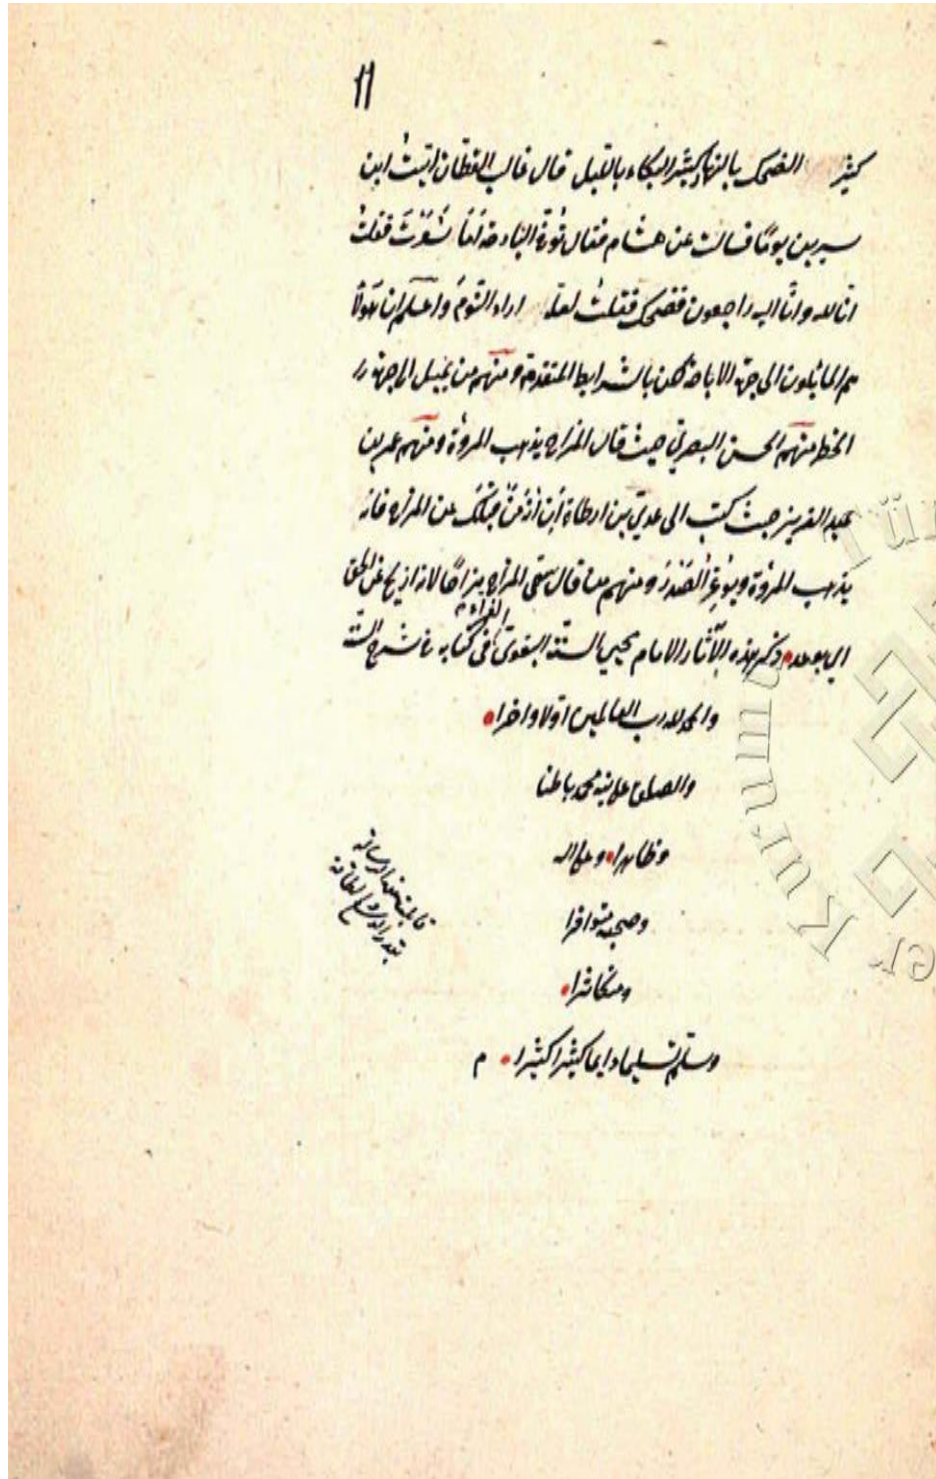 ١١
كثير الضحك بالنهار كثير البكاء بالليل قال غالب القطان اتيتُ ابن
سيرين يومًا فسالت عن هشام فقال تُوفِّيَ البارحة أمَا شَعَرْتَ فقلتُ
انّا لله وانَّا اليه راجعون فضحك فقلتُ لعله اراد النّومَ واعلم ان هؤلاء
هم المائلون الى جهة الاباحة لكن بالشرايط المتقدمة ومنهم من يميل الى جهة
الحظر منهم الحسن البصري حيث قال المزاح يذهب المروة ومنهم عمر بن
عبد العزيز حيث كتب الى عدي بن ارطاة أن عن المزاح فانه
يذهب المروة ويوغر الصَّدْرَ ومنهم من قال سمّى المزاح مزاحًا لانه ازيح عن الحق
اي بوعد ذكر هذه الآثار الامام محيي السنّة البغوى الفراء في كتابه شرح السنّة
والحمد لله رب العالمين اوّلا واخرا
والصلوة على نبيه محمد باطنا
وظاهرا وعلى اله
وصحبه متوافرا
ومتكاثرا
وسلّم تسليما دايما كثيرا كثيرا م
بقدر الوسع والطاقة
Kurumu